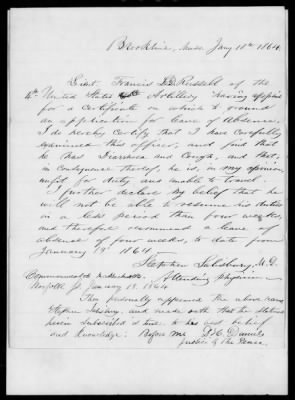 Brookline, Mass. Jany 18th 1864.
Lieut. Francis L.D. Russell of the
4th United States Artillery having applied
for a certificate on which to ground
an application for leave of Absence.
I do hereby certify that I have carefully
examined this officer, and find that
he has Diarrhoea and Cough, and that,
in consequence thereof, he is, in my opinion,
unfit for duty and unable to travel.
I further declare my belief that he
will not be able to resume his duties
in a less period than four weeks,
and therefore recommend a leave of
absence of four weeks, to date from
January 19th 1864.
Stephen Salisbury, M.D.
Attending physician
Commonwealth of Massachusetts
Norfolk ss. January 18. 1864
Then personally appeared the above named
Stephen Salisbury and made oath that the statement
given subscribed is true to his best belief
and knowledge: Before me Daniels
Justice of the Peace.